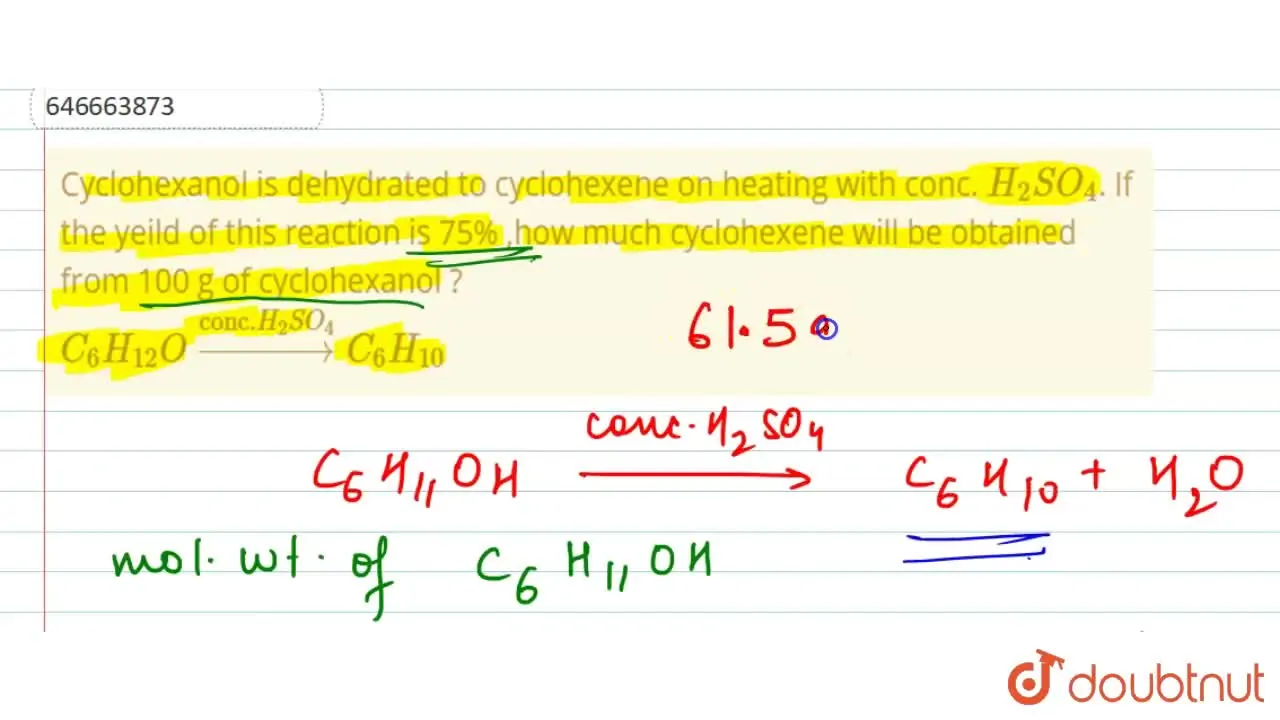 646663873
Cyclohexanol is dehydrated to cyclohexene on heating with conc. H₂SO₄. If
the yeild of this reaction is 75% ,how much cyclohexene will be obtained
from 100 g of cyclohexanol ?
conc.H₂SO₄
C₆H₁₂O → C₆H₁₀
61.5
conc. H₂SO₄
C₆H₁₁OH → C₆H₁₀ + H₂O
mol. wt. of C₆H₁₁OH
doubtnut